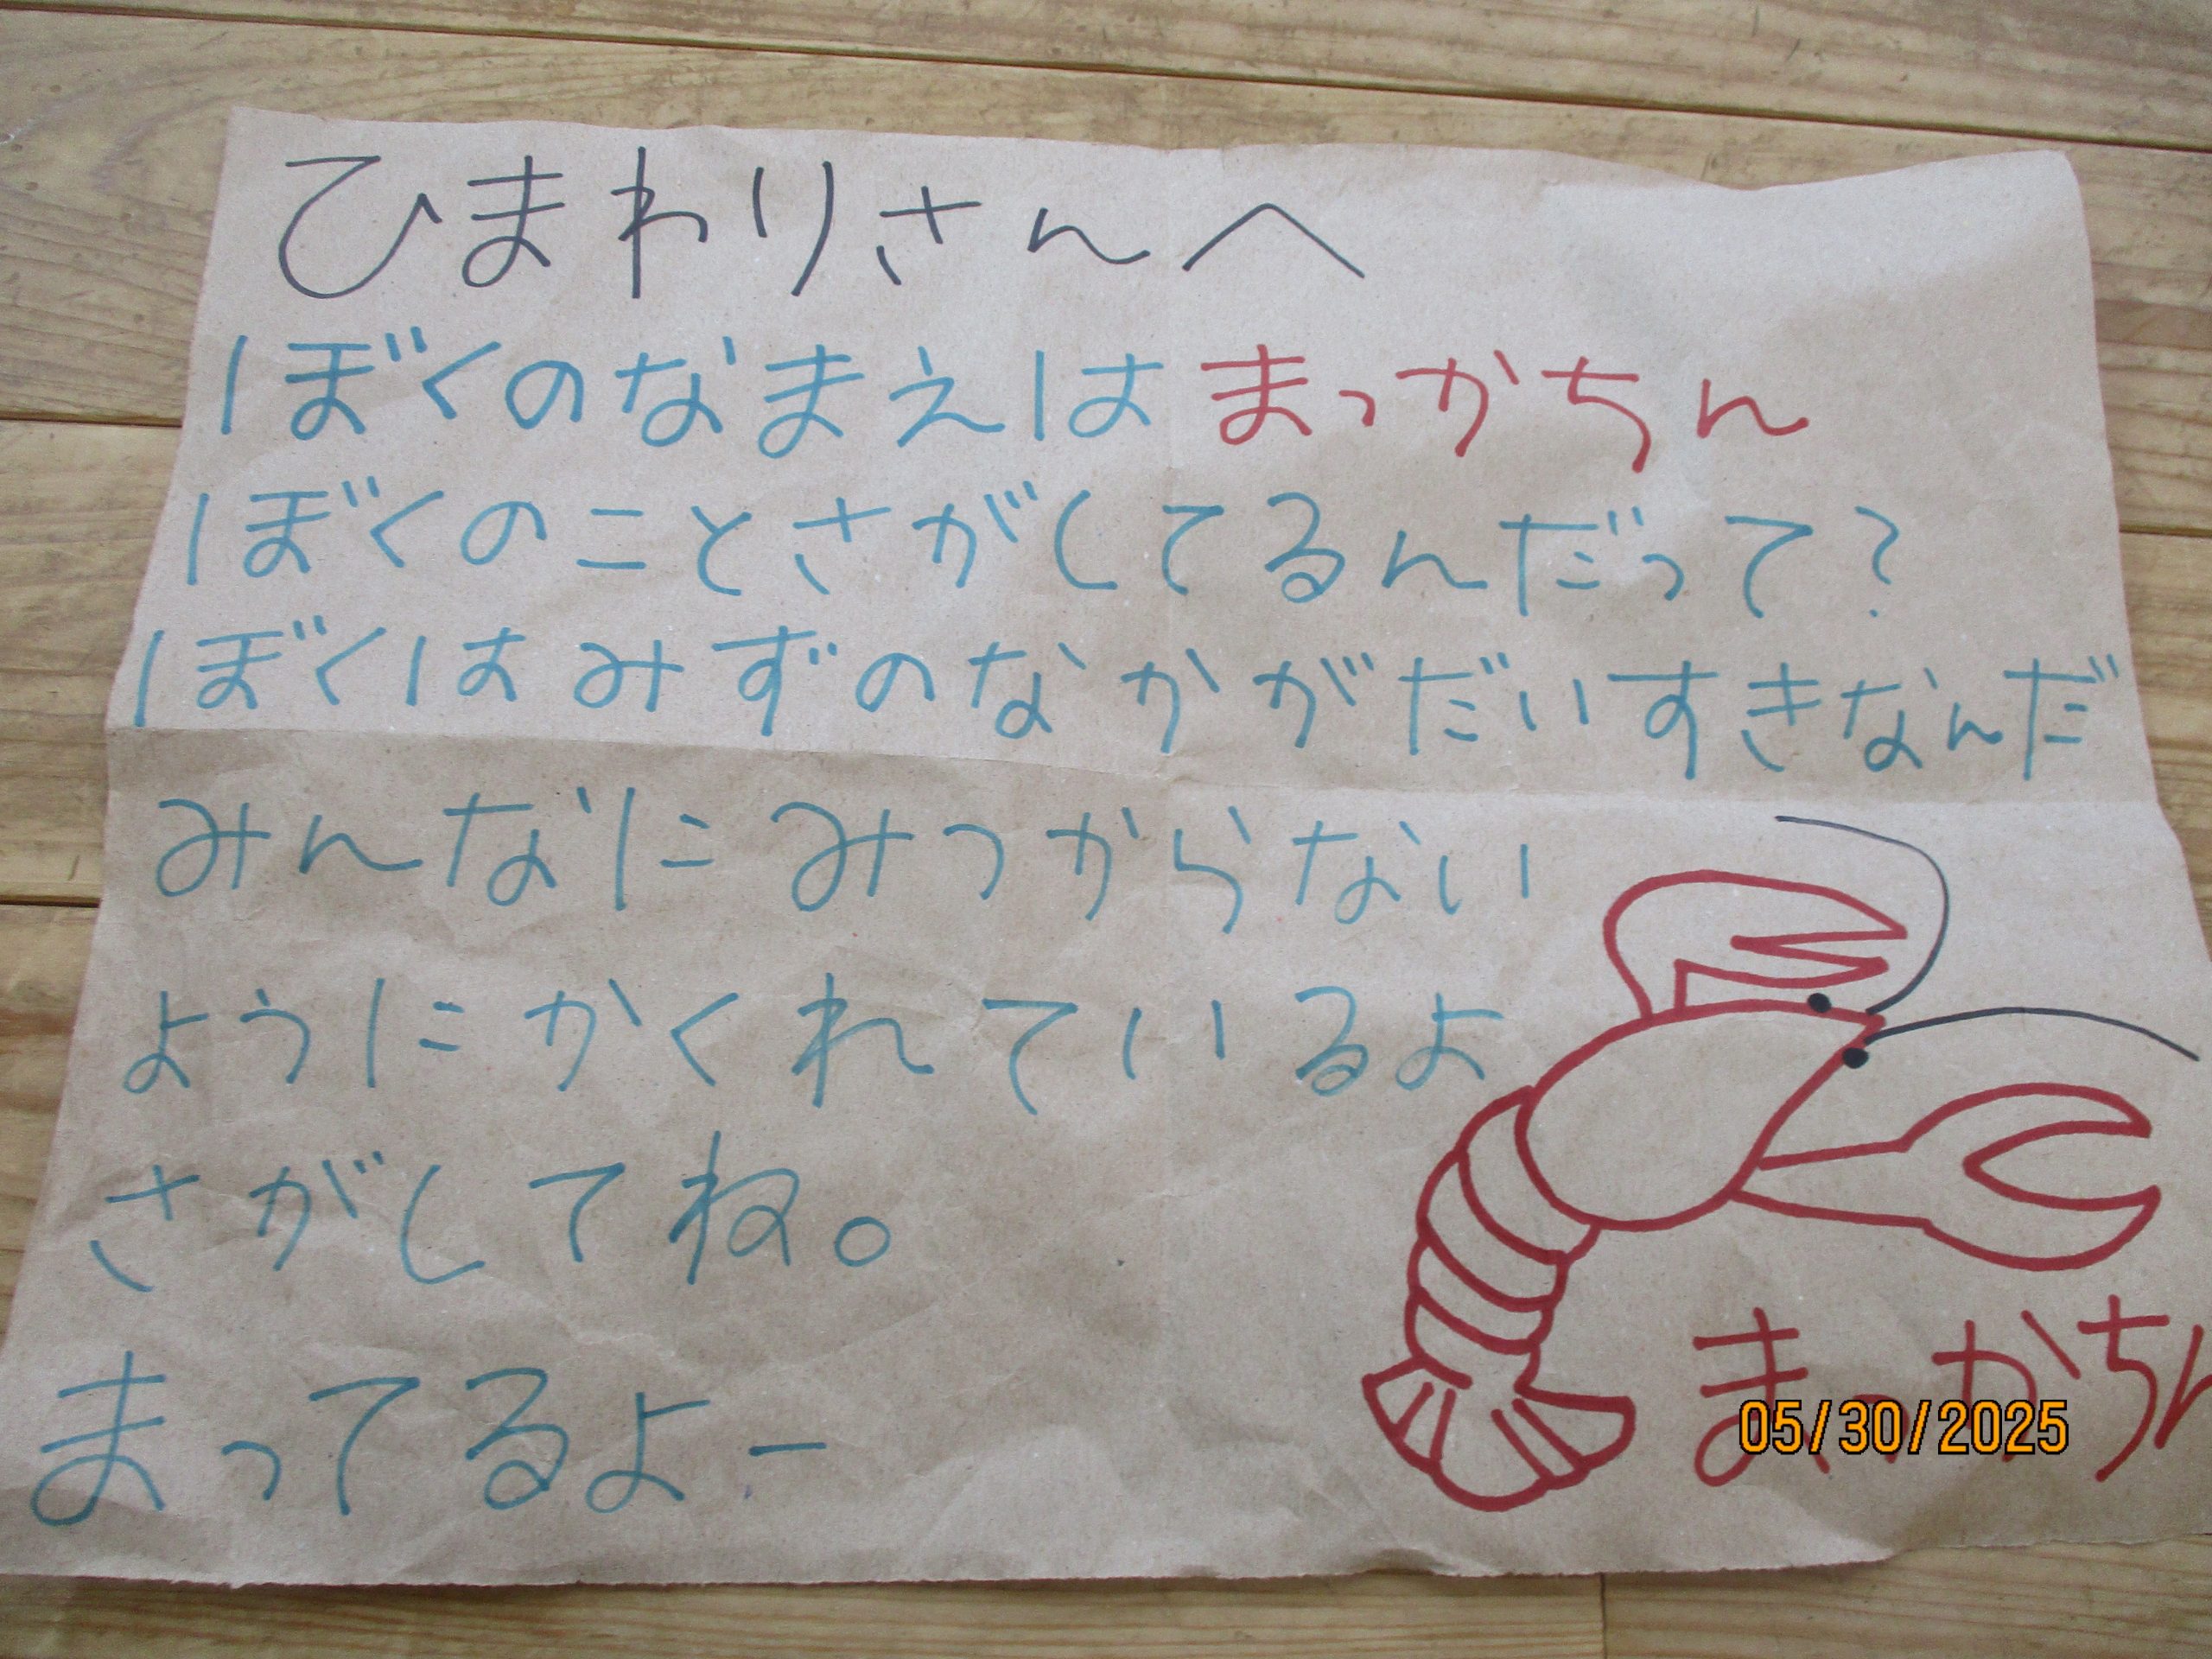 ひまわりさんへ
ぼくのなまえはまっかちん
ぼくのことさがしてるんだって?
ぼくはみずのなかがだいすきなんだ
みんなにみつからない
ようにかくれているよ
さがしてね。
まってるよー
まっかちん
05/30/2025